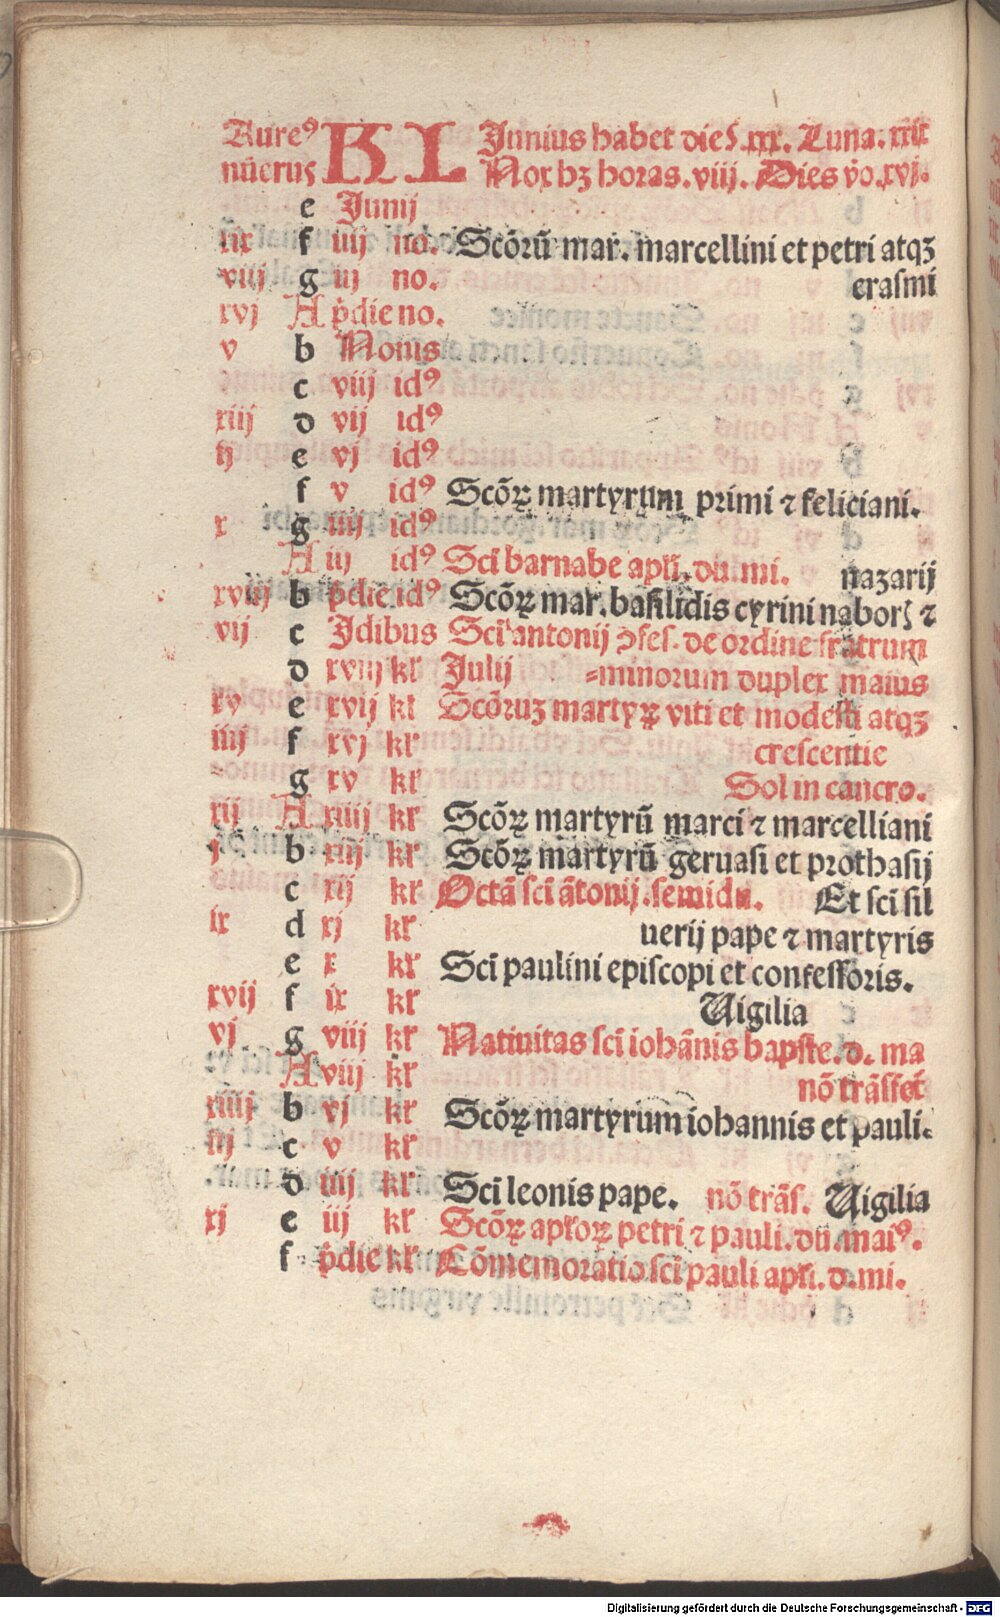 Aureꝰ KL Junius habet dies .xxx. Luna. xxix
nũerus Nox hꝫ horas. viij. Dies vo. xvj.
e Junij
xix f iiij no. Scõrũ mar. marcellini et petri atqꝫ
viij g iij no. erasmi
xvj A p̃die no.
v b Nonis
c viij idꝰ
xiij d vij idꝰ
ij e vj idꝰ
f v idꝰ Scõꝝ martyrum primi ⁊ feliciani.
x g iiij idꝰ
A iij idꝰ Sci barnabe apl̃i. du. mi. nazarij
xviij b p̃die idꝰ Scõꝝ mar. basilidis cyrini nabor ⁊
vij c Jdibus Sci antonij ɔfes. de ordine fratrum
d xviij kl̃ Julij =minorum duplex maius
xv e xvij kl Scõruꝫ martyꝝ viti et modesti atqꝫ
iiij f xvj kl̃ crescentie
g xv kl̃ Sol in cancro.
xij A xiiij kl̃ Scõꝝ martyrũ marci ⁊ marcelliani
j b xiij kl̃ Scõꝝ martyrũ geruasi et prothasij
c xij kl̃ Octã sci ãtonij. semidu. Et sci sil
ix d xj kl̃ uerij pape ⁊ martyris
e x kl̃ Sci paulini episcopi et confessoris.
xvij f ix kl̃ Uigilia
vj g viij kl̃ Natiuitas sci iohãnis bapste. d. ma
A vij kl̃ nõ trãsfet̃
xiiij b vj kl̃ Scõꝝ martyrum iohannis et pauli.
iij c v kl̃
d iiij kl̃ Sci leonis pape. nõ trãs. Uigilia
xj e iij kl̃ Scõꝝ apl̃oꝝ petri ⁊ pauli. du. maiꝰ.
f p̃die kl̃ Cõmemoratio sci pauli apl̃i. d. mi.
Digitalisierung gefördert durch die Deutsche Forschungsgemeinschaft - DFG